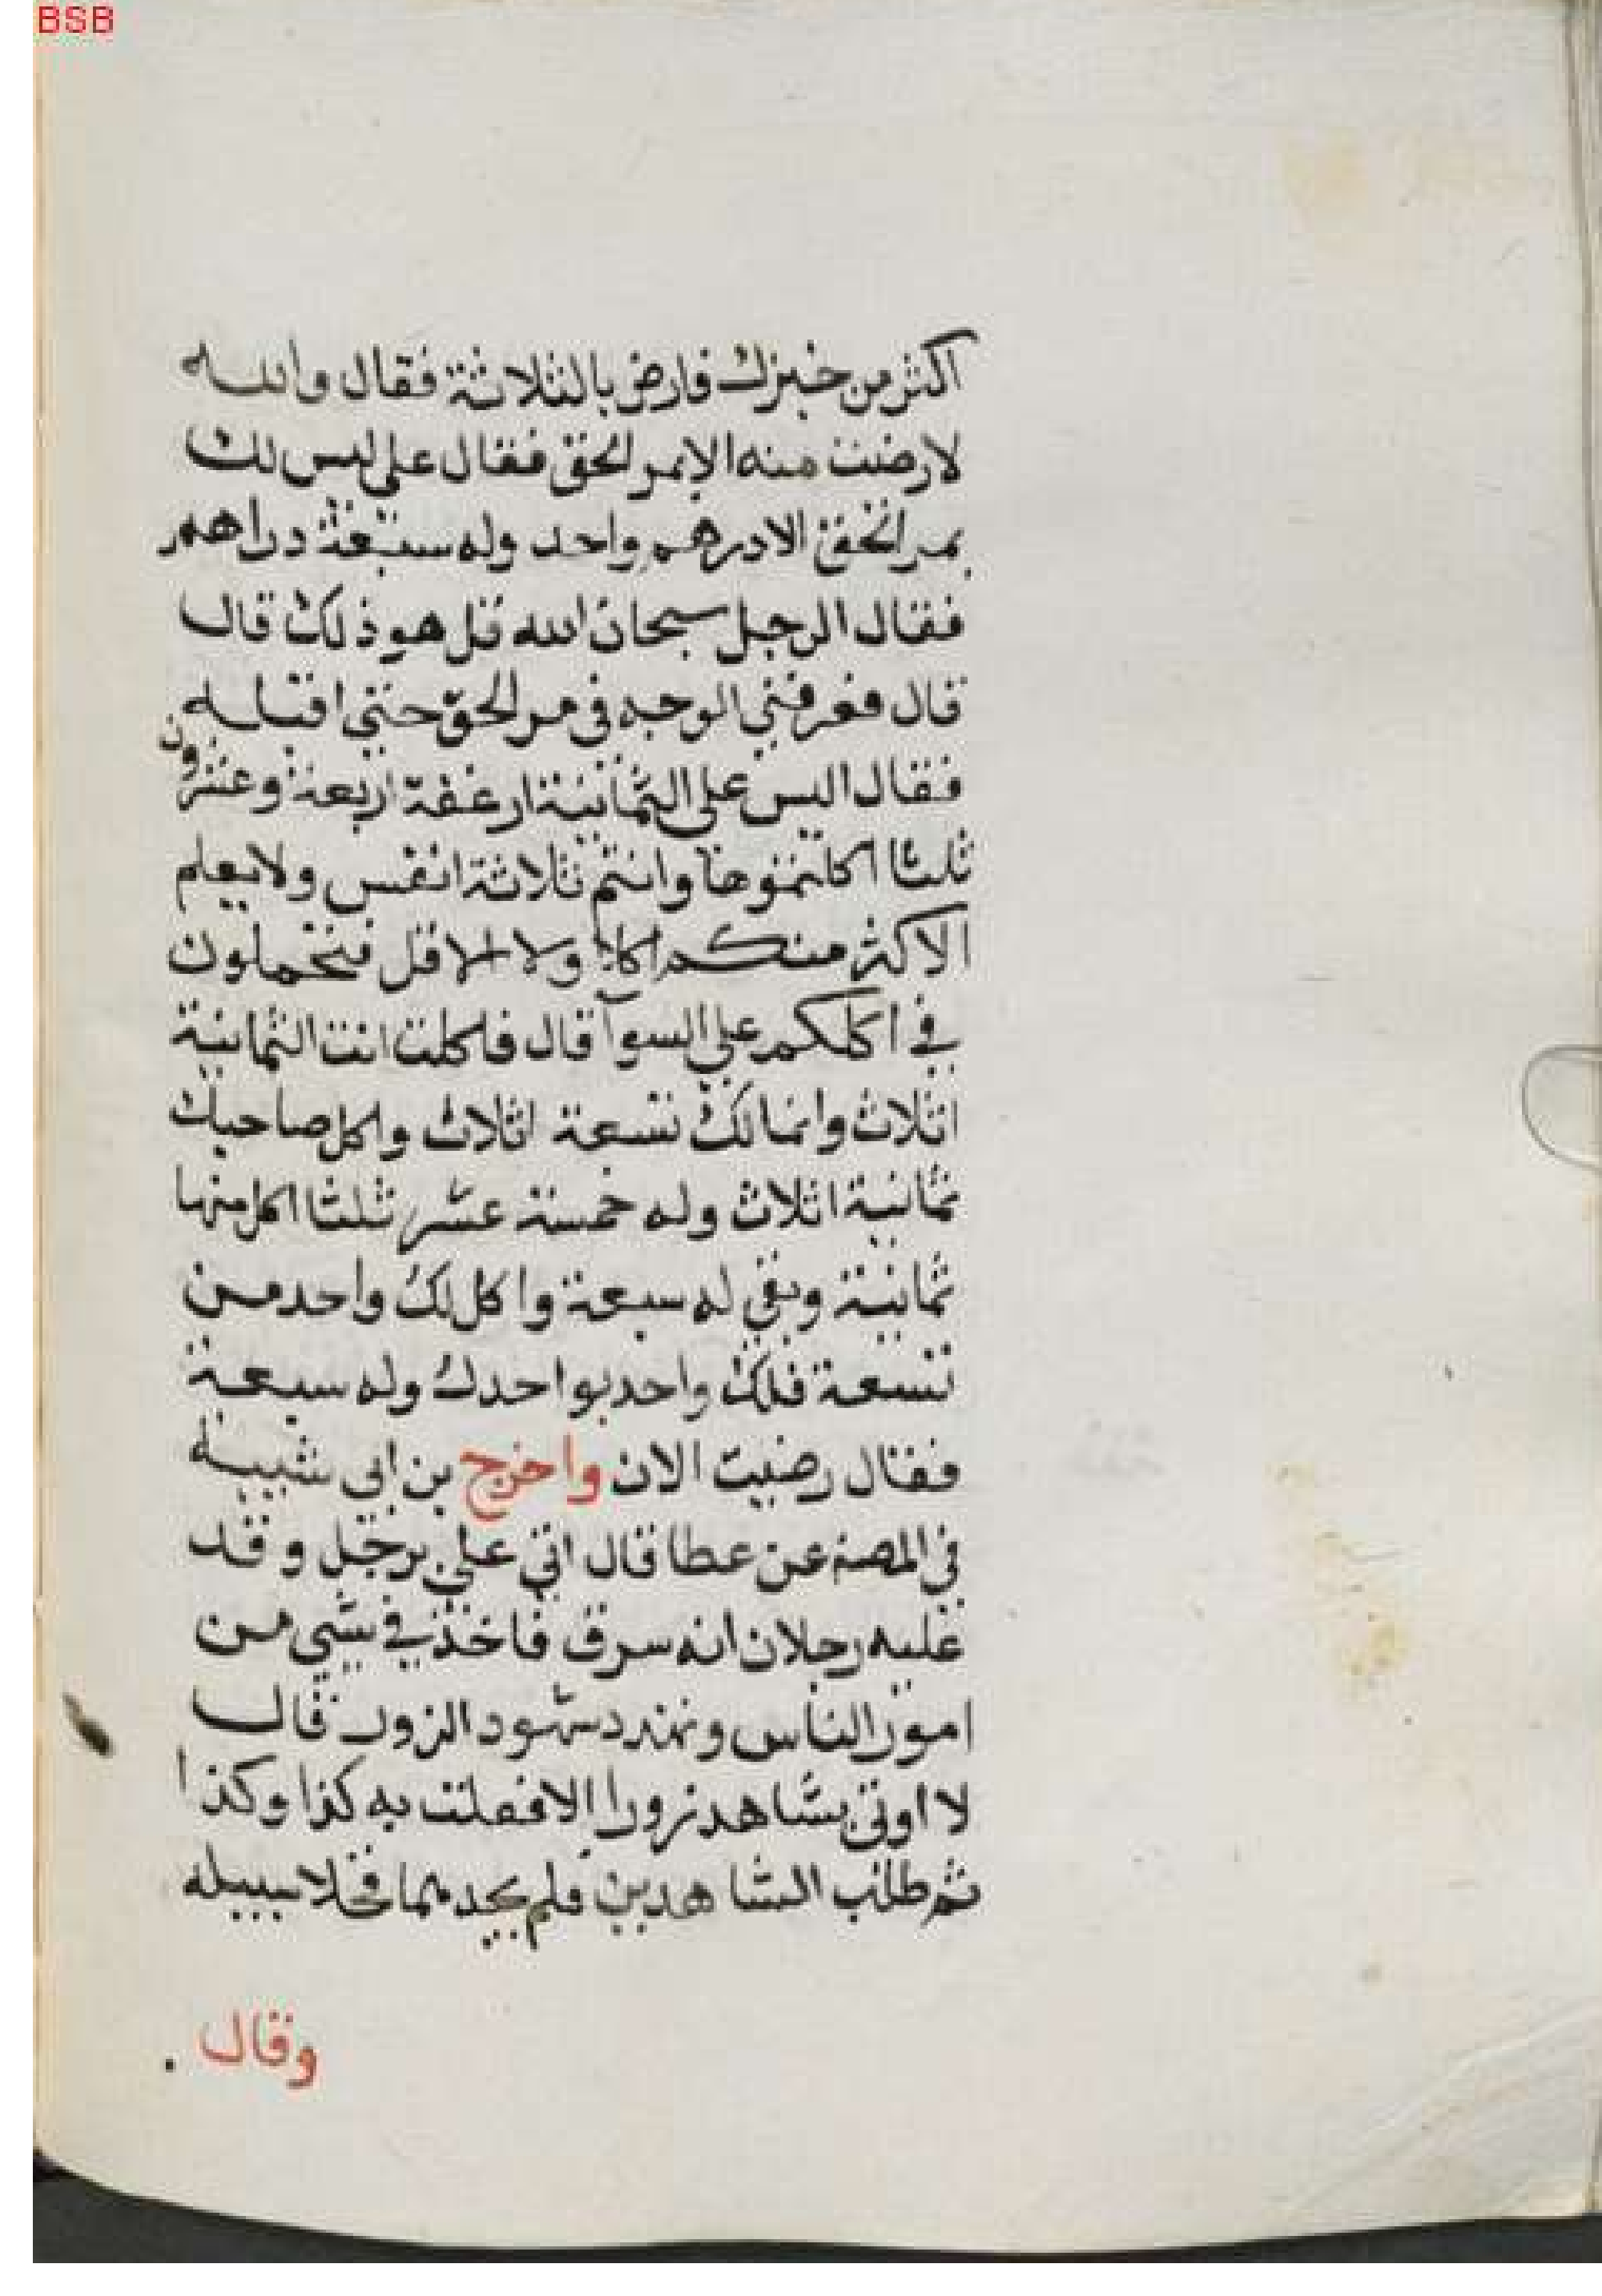 BSB
اكثر من خبزك فارض بالثلاثة فقال والله
لارضيت منه الابمر الحق فقال علي ليس لك
بمر الحق الا درهم واحد وله سبعة دراهم
فقال الرجل سبحان الله قل هو ذلك قال
قال فعرفني الوجه في مر الحق حتي اقبله
فقال اليس علي الثمانية ارغفة اربعة وعشرون
ثلثا اكلتموها وانتم ثلاثة انفس ولا يعلم
الاكثر منكم اكلا ولا الاقل فتحملون
في اكلكم علي السوآ قال فاكلت انت الثمانية
اثلاث وانما لك تسعة اثلاث واكل صاحبك
ثمانية اثلاث وله خمسة عشر ثلثا اكل منها
ثمانية وبقي له سبعة واكل لك واحد من
تسعة فلك واحد بواحدك وله سبعة
فقال رضيت الان واخرج بن ابي شيبة
في المصنف عن عطا قال اتي علي برجل وقد
عليه رجلان انه سرق فاخذ في شي من
امور الناس وتهدد شهود الزور قال
لا اوتي بشاهد زور الا فعلت به كذا وكذا
ثم طلب الشاهدين فلم يجدهما فخلا سبيله
وقال